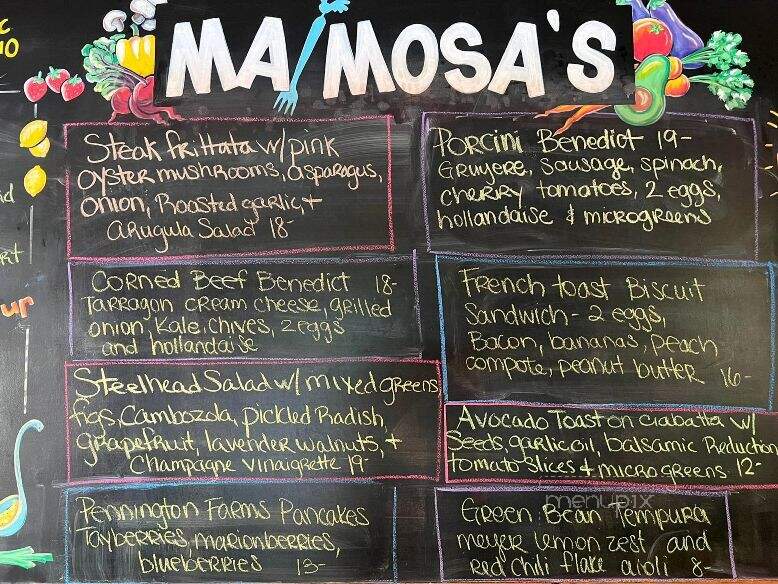 MA MOSA'S
Steak Frittata w/ pink
oyster mushrooms, asparagus,
onion, Roasted garlic, +
arugula Salad 18-
Porcini Benedict 19-
Gruyere, sausage, spinach,
cherry tomatoes, 2 eggs,
hollandaise & microgreens
Corned Beef Benedict 18-
Tarragon cream cheese, grilled
onion, Kale, chives, 2 eggs
and hollandaise
French toast Biscuit
Sandwich - 2 eggs,
Bacon, bananas, peach
compote, peanut butter 16-
Steelhead Salad w/ mixed greens
figs, Cambozola, pickled Radish,
grapefruit, lavender walnuts, +
Champagne vinaigrette 19-
Avocado Toast on ciabatta w/
Seeds, garlic oil, balsamic Reduction
tomato slices & microgreens 12-
Pennington Farms Pancakes
Tayberries, marionberries,
blueberries 13-
Green Bean Tempura
meyer lemon zest and
red chili flake aioli 8-
menupix
up